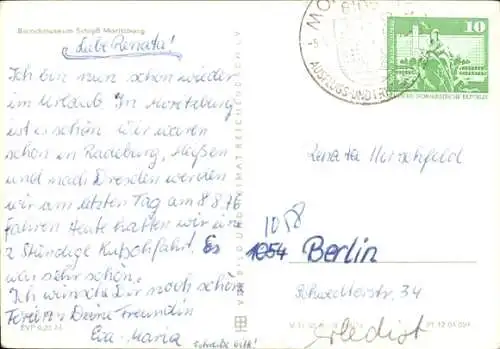 Barockmuseum Schloß Moritzburg
Liebe Renata!
Ich bin nun schon wieder
im Urlaub. In Moritzburg
ist es schön. Wir waren
schon in Radeburg, Meißen
und nach Dresden werden
wir am letzten Tag am 8.8.76
fahren. Heute hatten wir eine
2 stündige Kutschfahrt. Es
war sehr schön.
Ich wünsche Dir noch schöne
Ferien Deine Freundin
Eva-Maria
schreibe bitte!
EVP 0,20 M
VEB BILD UND HEIMAT REICHENBACH i. V.
AUSFLUGS- UND
10
DEUTSCHE DEMOKRATISCHE REPUBLIK
Renata Hirschfeld
1058
1054 Berlin
Schwedterstr. 34
erledigt